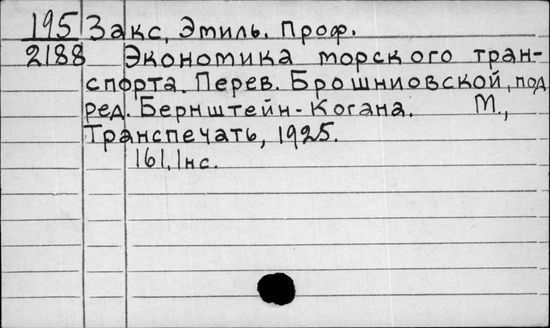 195 Закс, Эмиль. Проф.
2188 Экономика морского тран-
спорта. Перев. Брошниовской, под
ред. Бернштейн-Когана. М.,
Транспечать, 1925.
161, 1нс.